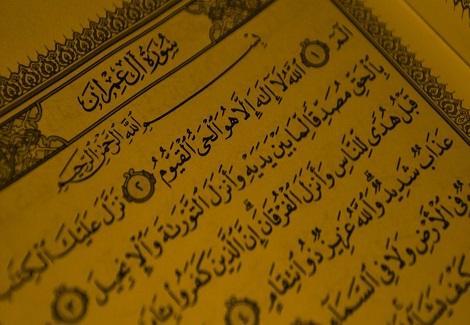 سُورَةُ آلِ عِمْرَانَ
بِسْمِ ٱللَّهِ ٱلرَّحْمَٰنِ ٱلرَّحِيمِ
الٓمٓ ١ ٱللَّهُ لَآ إِلَٰهَ إِلَّا هُوَ ٱلْحَىُّ ٱلْقَيُّومُ ٢ نَزَّلَ عَلَيْكَ ٱلْكِتَٰبَ
بِٱلْحَقِّ مُصَدِّقًا لِّمَا بَيْنَ يَدَيْهِ وَأَنزَلَ ٱلتَّوْرَىٰةَ وَٱلْإِنجِيلَ ٣
قَبْلُ هُدًى لِّلنَّاسِ وَأَنزَلَ ٱلْفُرْقَانَ ۗ إِنَّ ٱلَّذِينَ كَفَرُوا۟
عَذَابٌ شَدِيدٌ ۗ وَٱللَّهُ عَزِيزٌ ذُو ٱنتِقَامٍ ٤
فِى ٱلْأَرْضِ وَلَا فِى ٱلسَّمَآءِ
كَيْفَ يَشَآءُ